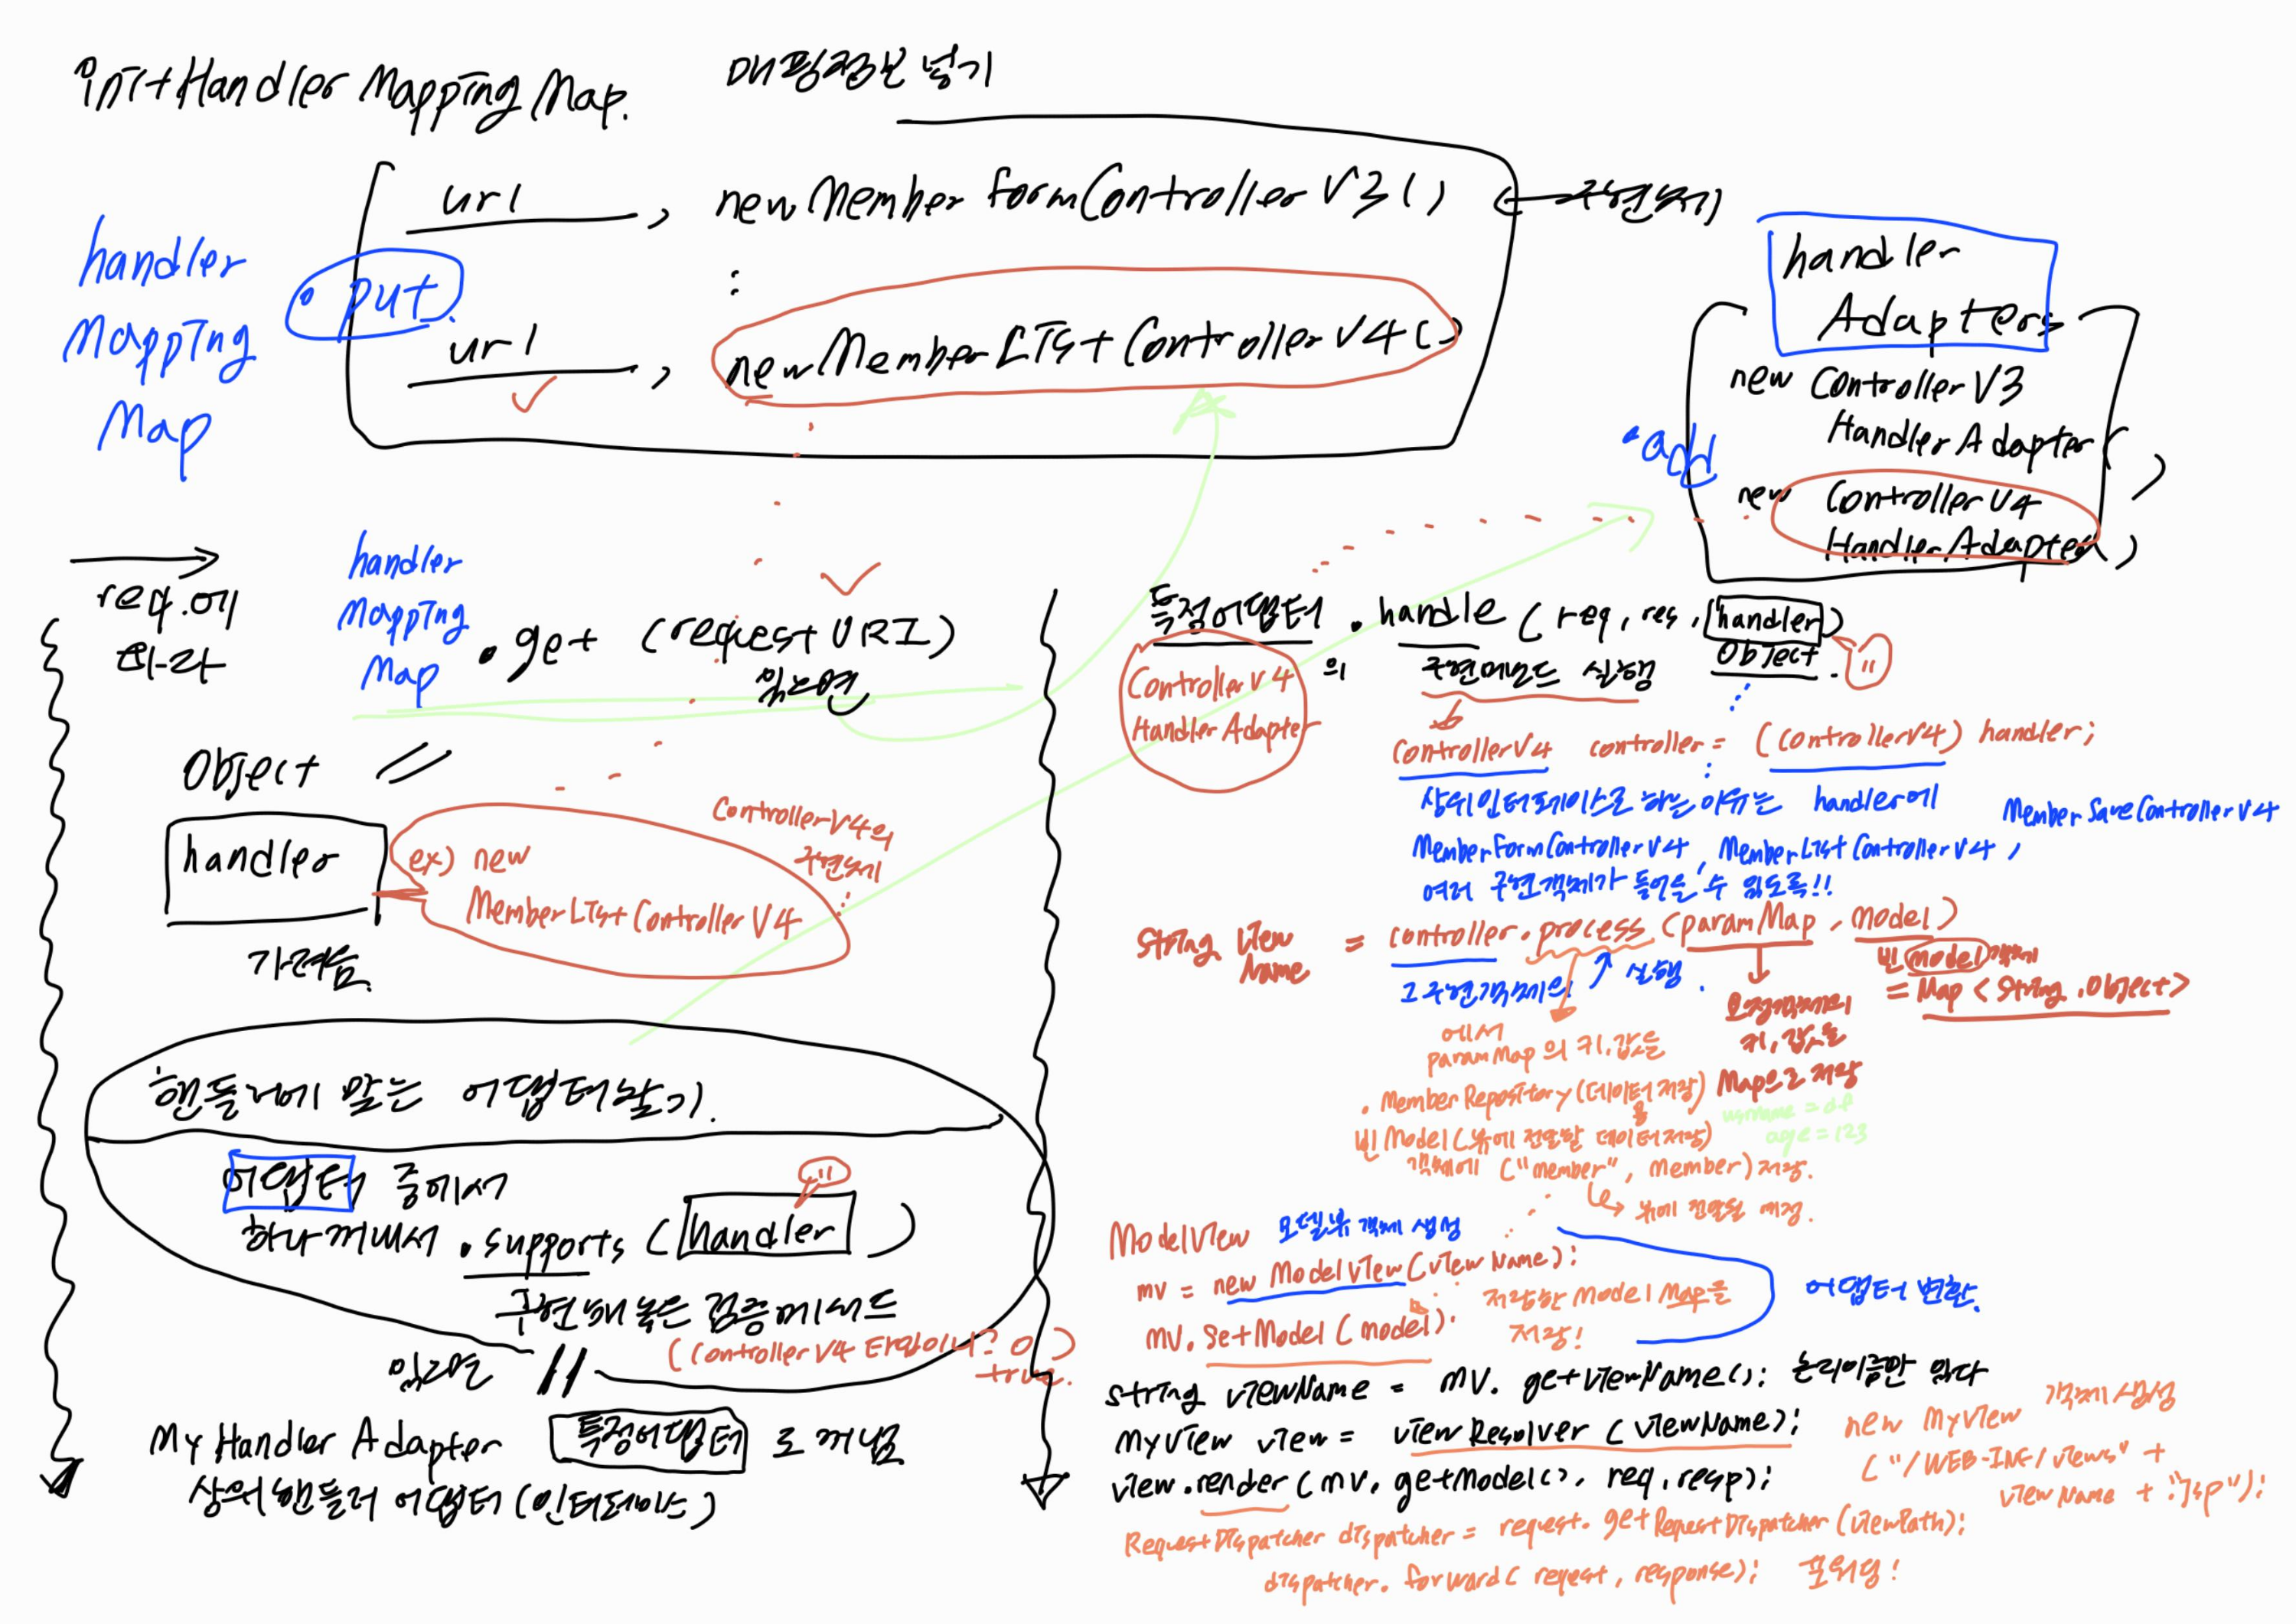 initHandler Mapping Map.
매핑정보 넣기
handler
Mapping
Map
. put.
url , new Member form Controller V3 ( )
← 구현객체
:
url , new Member List Controller V4 ( )
handler
Adapters
.add
new Controller V3
Handler Adapter ( )
new Controller V4
Handler Adapter ( )
→
req.에
따라
handler
Mapping
Map
. get (request URI)
있는지
Object //
handler
ex) new
Member List Controller V4
Controller V4의
구현객체
가려줌.
핸들러에 맞는 어댑터찾기.
어댑터 중에서
하나 꺼내서 . supports ( handler )
"
구현해 놓은 검증메서드
(Controller V4 타입이니? O )
true.
있으면 //
My Handler Adapter 특정어댑터 로 꺼냄
상위 핸들러 어댑터 (인터페이스)
특정어댑터 . handle ( req, res, handler )
Object.
"
Controller V4
Handler Adapter
의 구현메서드 실행
Controller V4 controller = (Controller V4) handler;
상위인터페이스로 하는 이유는 handler에
Member Form Controller V4, Member List Controller V4,
Member Save Controller V4
여러 구현객체가 들어올 수 있도록!!
String View
Name
= controller.process (paramMap, model)
그 구현객체의 실행.
빈 model 객체
= Map < String, Object >
요청객체의
키, 값을
Map으로 저장
username = df
age = 123
에서
paramMap 의 키, 값을
. Member Repository (데이터 저장)
용
빈 Model (뷰에 전달할 데이터저장)
객체에 ("member", member) 저장.
↳ 뷰에 전달될 예정.
ModelView 모델뷰 객체 생성
mv = new ModelView (view Name);
mv. SetModel (model);
저장한 Model Map을
저장!
어댑터 변환.
string viewName = mv. getViewName(); 논리이름만 있다
MyView view = viewResolver (viewName);
view.render (mv. getModel(), req, resp);
new MyView 객체 생성
("/WEB-INF/views" +
viewName + ".jsp");
RequestDispatcher dispatcher = request. getRequestDispatcher (viewPath);
dispatcher. forward ( request, response); 포워딩!